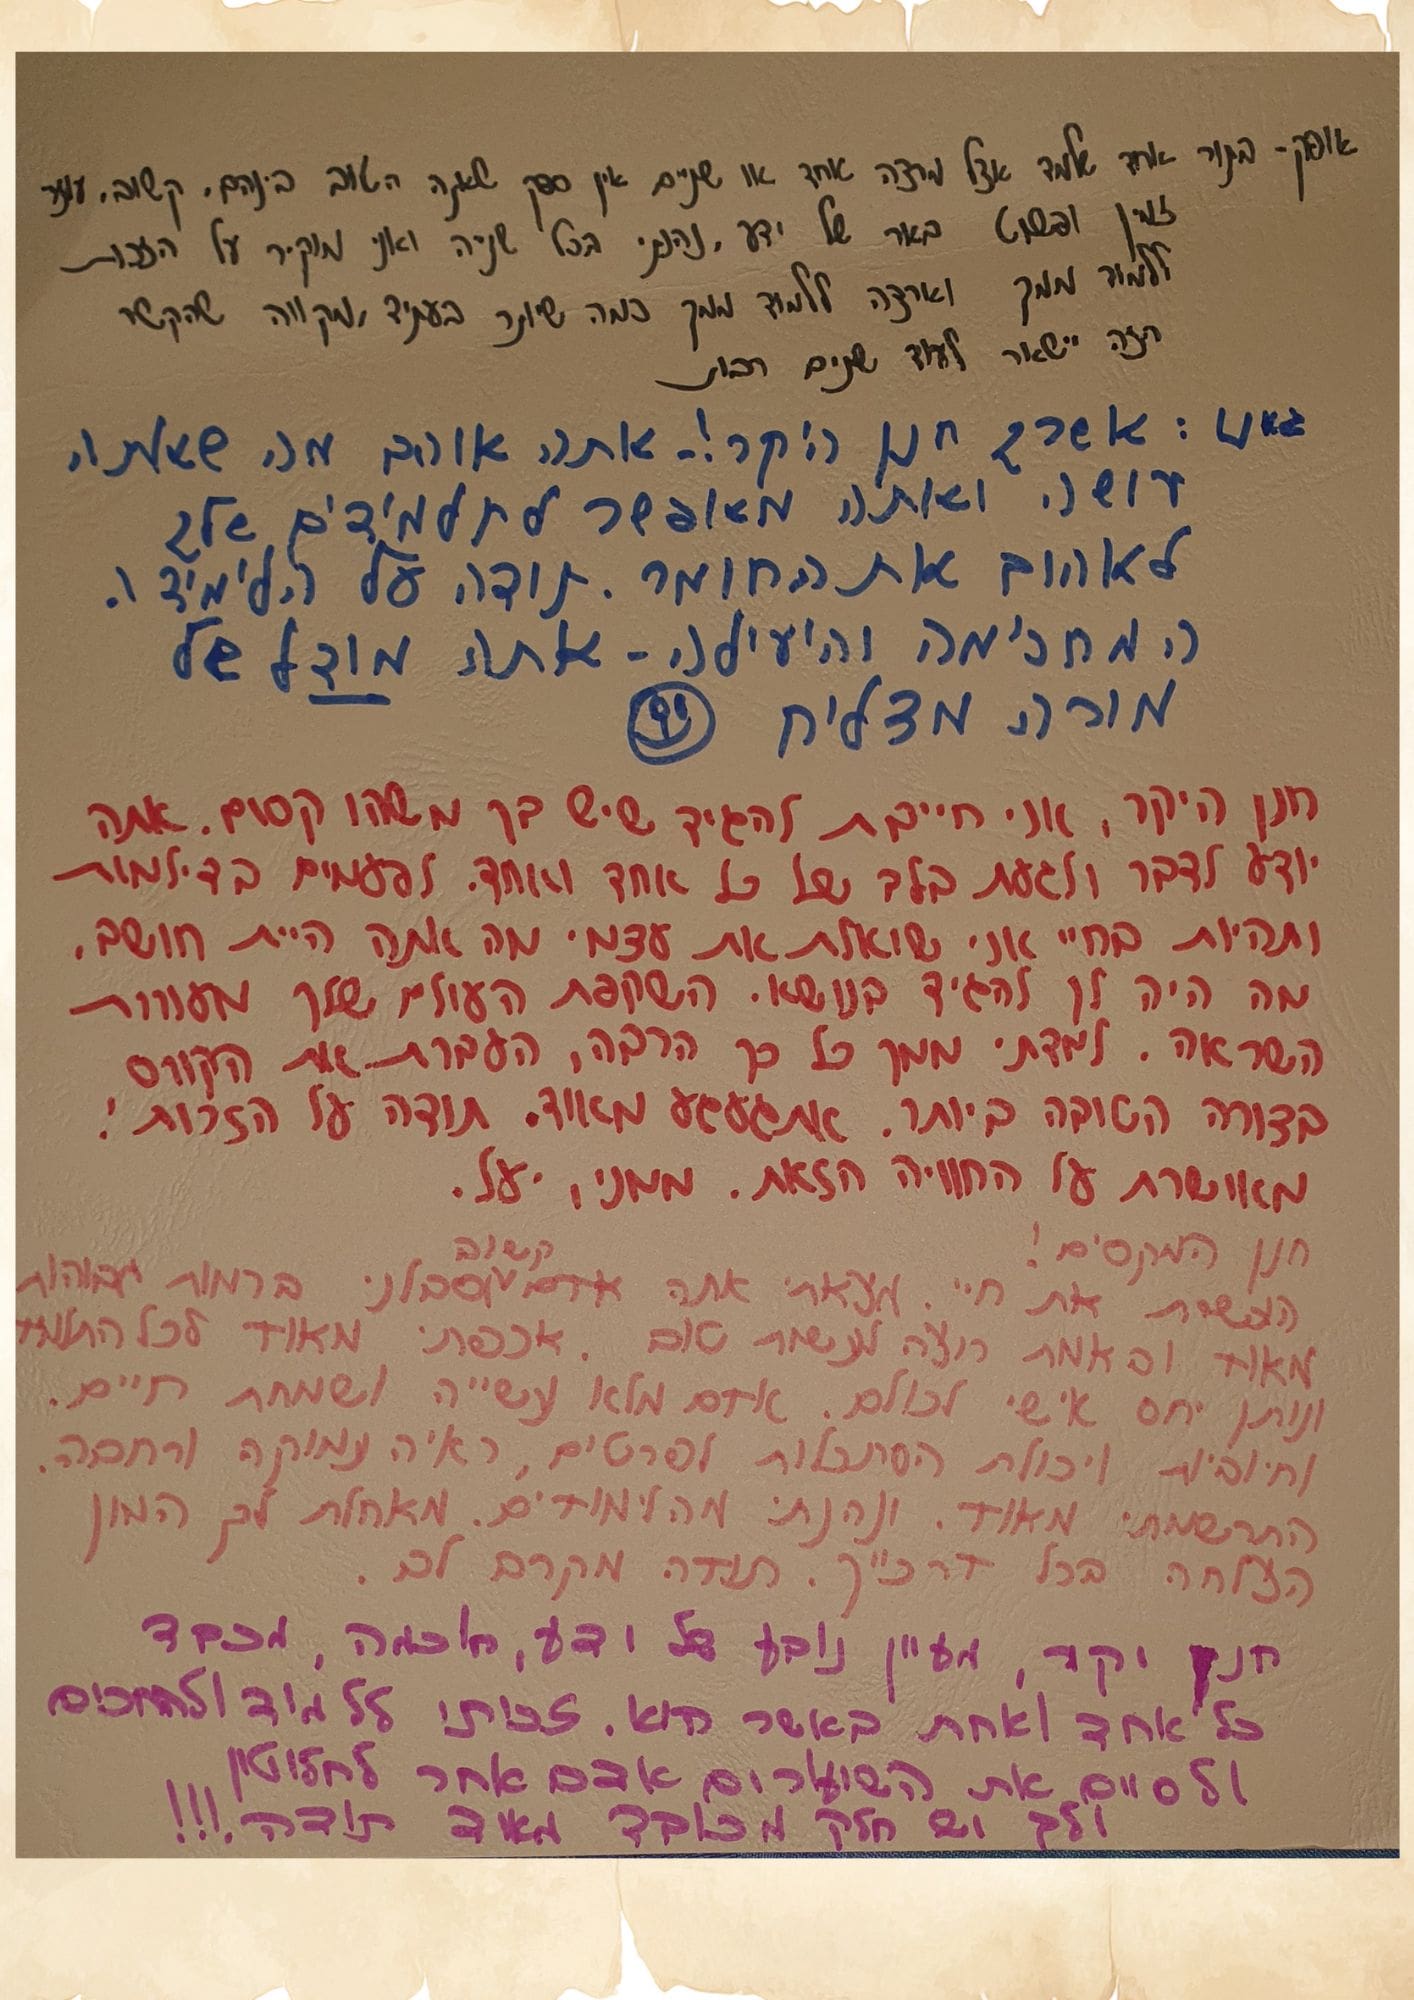 אופק- בתור אחד שלמד אצל מרצה אחד או שניים אין ספק שאתה הטוב ביניהם. קשוב, עוזר
זמין ופשוט באר של ידע, נהנתי בכל שנייה ואני מוקיר על הזכות
ללמוד ממך וארצה ללמוד ממך כמה שיותר בעתיד, מקווה שהקשר
הזה יישאר לעוד שנים רבות
אשרך חנן היקר!- אתה אוהב מה שאתה
עושה ואתה מאפשר לתלמידים שלך
לאהוב את החומר. תודה על הלימידה
המחכימה והיעילה - אתה מודל של
מורה מצליח
חנן היקר, אני חייבת להגיד שיש בך משהו קסום. אתה
יודע לדבר ולגעת בלב של כל אחד ואחד. לפעמים בדילמות
ותהיות בחיי אני שואלת את עצמי מה אתה היית חושב,
מה היה לך להגיד בנושא. השקפת העולם שלך מעוררת
השראה. למדתי ממך כל כך הרבה, העברת את הקורס
בצורה הטובה ביותר. אתגעגע מאוד. תודה על הזכות!
מאושרת על החוויה הזאת. ממני, יעל.
חנן המקסים!
קשוב
העשרת את חיי. מצאתי אתה אדם סבלני ברמות גבוהות
מאוד ובאמת רוצה לעשות טוב. אכפתי מאוד לכל
ונותן יחס אישי לכולם. אדם מלא עשייה ושמחת חיים.
וחיוביות ויכולת הסתכלות לפרטים, ראיה עמוקה ורחבה.
התרשמתי מאוד. ונהנתי מהלימודים. מאחלת לך המון
הצלחה בכל דרכייך. תודה מקרב לב.
חנן יקר, מעיין נובע של ידע, חוכמה, מכבד
כל אחד ואחת באשר הוא. זכותי ללמוד ולהחכים
ולסיים את השיעורים אדם אחר לחלוטין
ולך יש חלק מכובד מאוד תודה.!!!